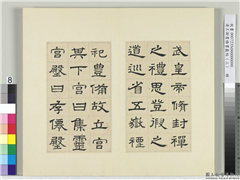 武皇帝脩封禪
之禮思登徦之
道巡省五嶽禋
祀豐備故立宮
其下宮曰集靈
宮壂曰存僊壂
8